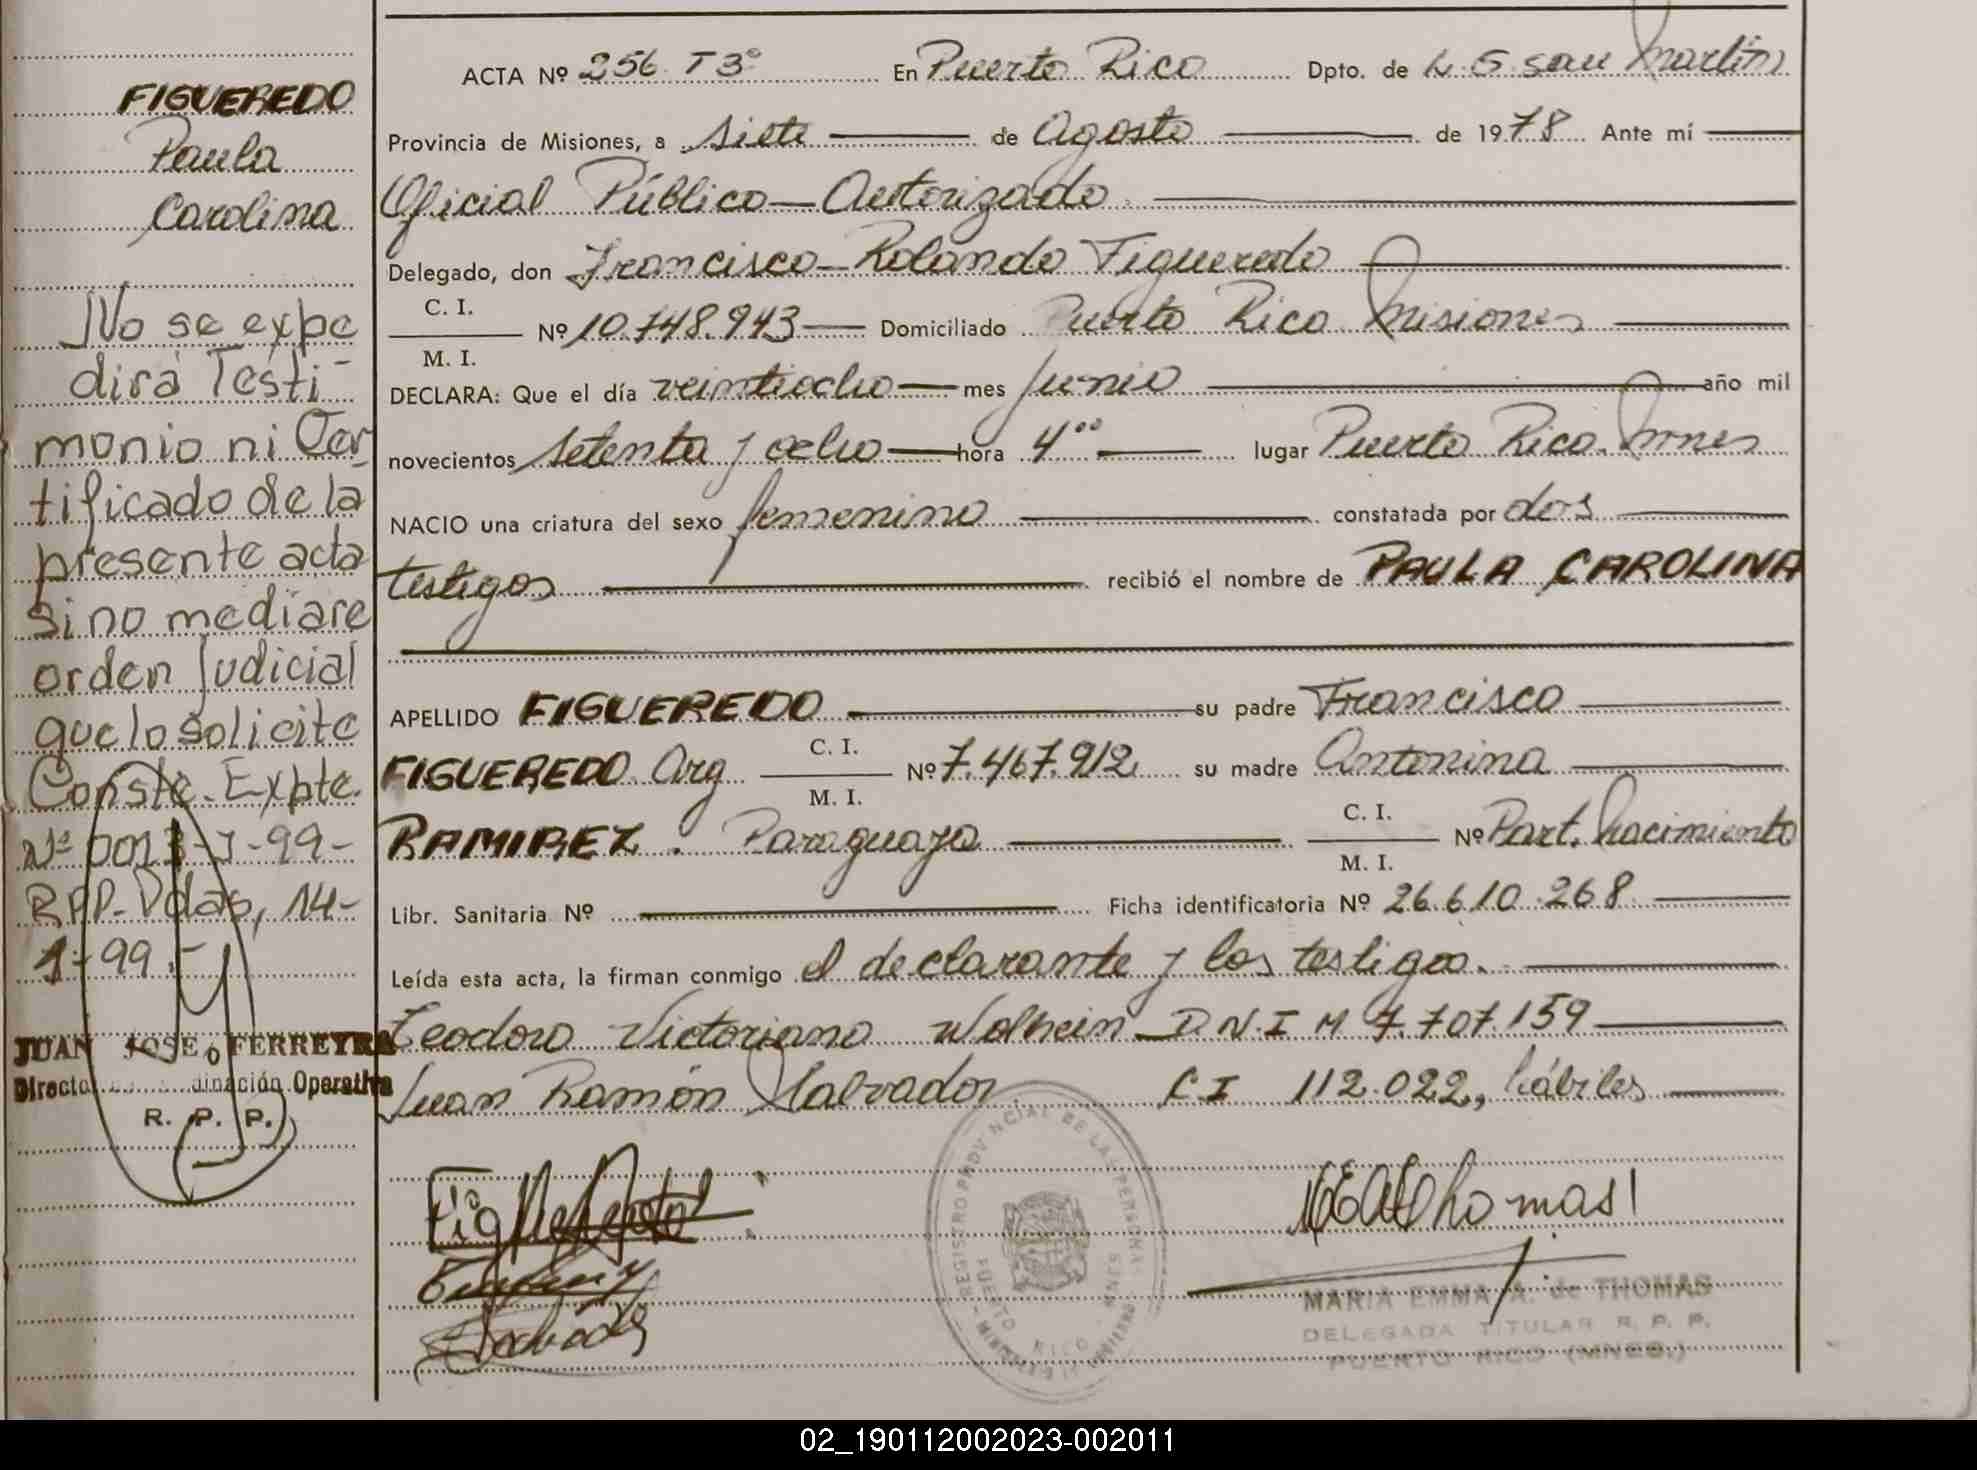 FIGUEREDO
Paula
Carolina
No se expe
dirá Testi-
monio ni Cer-
tificado de la
presente acta
si no mediare
orden Judicial
que lo solicite
Conste. Expte.
Nº 0013-J-99-
RPP-Pdas, 14-
1-99.-
JUAN JOSE FERREYRA
Operativa
R. P. P.
ACTA Nº 256 T 3º En Puerto Rico Dpto. de L. G. san Martin
Provincia de Misiones, a siete de Agosto de 1978 Ante mí
Oficial Público Autorizado
Delegado, don Francisco Rolando Figueredo
C. I.
Nº 10.748.943 Domiciliado Puerto Rico Misiones
M. I.
DECLARA: Que el día veintiocho mes Junio año mil
novecientos setenta y ocho hora 4ºº lugar Puerto Rico. Mnes
NACIO una criatura del sexo femenino constatada por dos
testigos recibió el nombre de PAULA CAROLINA
APELLIDO FIGUEREDO su padre Francisco
C. I.
FIGUEREDO Arg Nº 7.467.912 su madre Antonina
M. I.
C. I.
RAMIREZ. Paraguaya Nº Part. Nacimiento
M. I.
Libr. Sanitaria Nº Ficha identificatoria Nº 26.610.268
Leída esta acta, la firman conmigo el declarante y los testigos.
Teodoro Victoriano Wolhein D.N.I M 7.707.159
Juan Ramón Salvador CI 112.022, hábiles
REGISTRO PROVINCIAL DE LAS PERSONAS
PUERTO RICO - MNES
MARIA EMMA A. de THOMAS
DELEGADA TITULAR R. P. P.
PUERTO RICO (MNES.)
02_190112002023-002011